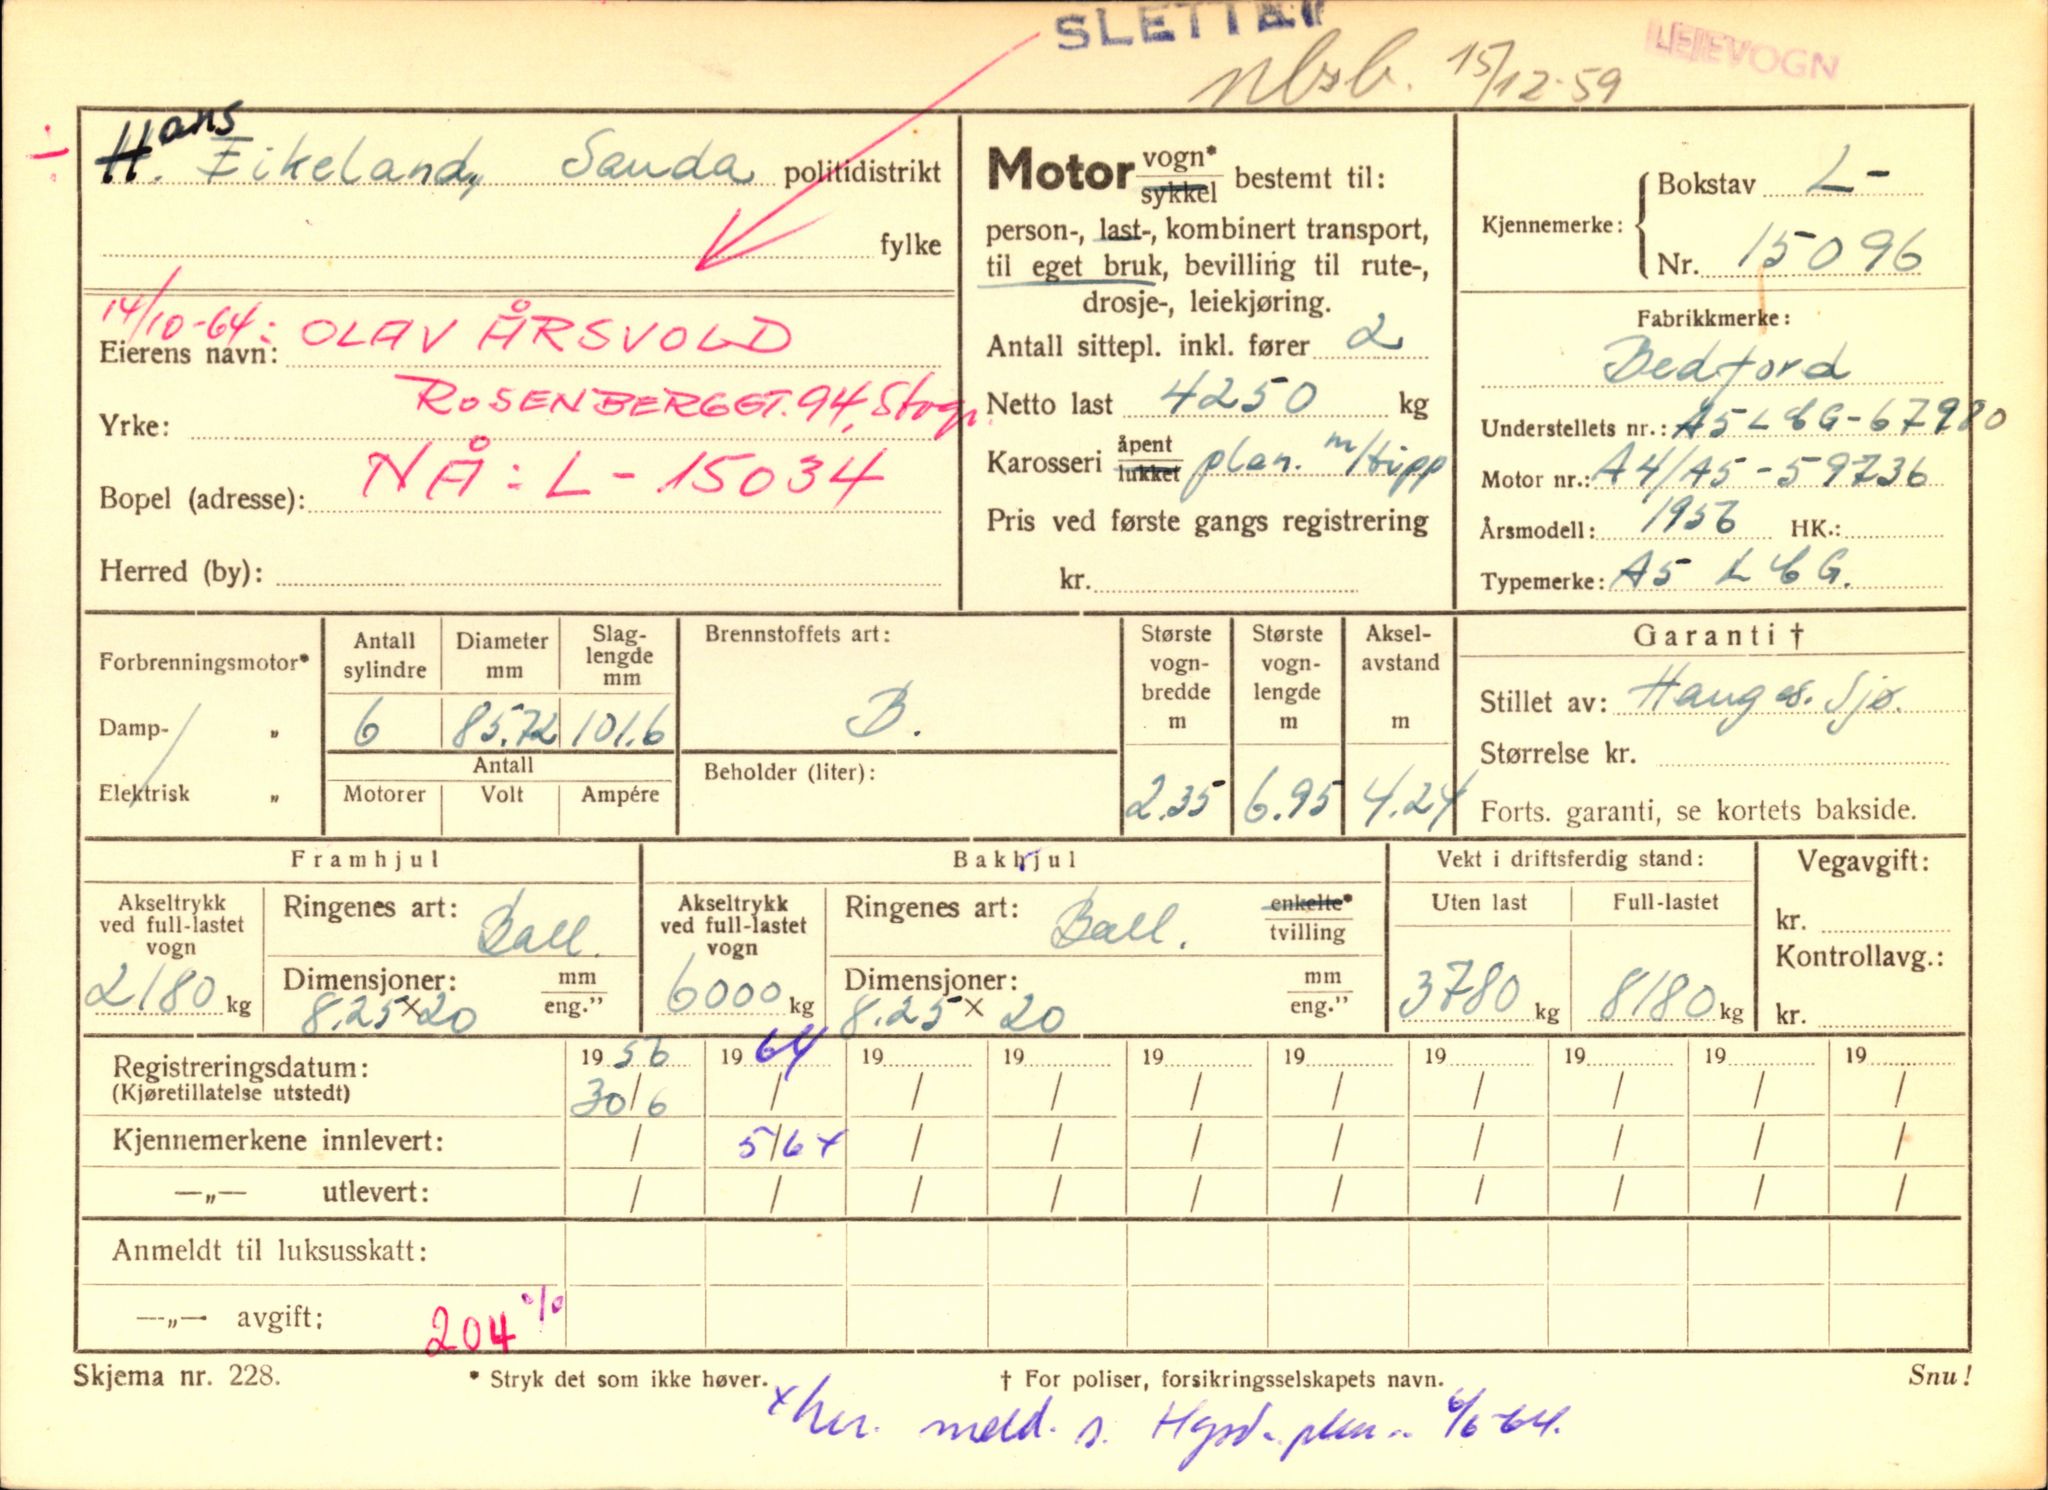 SLETTET
15/12-59
LEIEVOGN
Hans
H. Eikeland, Sauda politidistrikt
fylke
14/10-64: OLAV ÅRSVOLD
Eierens navn:
ROSENBERGGT. 94, Stvgr.
Yrke:
NÅ: L - 15034
Bopel (adresse):
Herred (by):
Motor vogn*
sykkel bestemt til:
person-, last-, kombinert transport,
til eget bruk, bevilling til rute-,
drosje-, leiekjøring.
Antall sittepl. inkl. fører 2
Netto last 4250 kg
Karosseri åpent
lukket plan. m/tipp
Pris ved første gangs registrering
kr.
Kjennemerke:
Bokstav L-
Nr. 15096
Fabrikkmerke:
Bedford
Understellets nr.: A5LCG-67980
Motor nr.: A4/A5-59736
Årsmodell: 1956 HK.:
Typemerke: A5 LCG.
Forbrenningsmotor*
Damp- „
Elektrisk „
Antall sylindre
Diameter mm
Slag-
lengde
mm
6 85.72 101.6
Antall
Motorer Volt Ampére
Brennstoffets art:
B.
Beholder (liter):
Største
vogn-
bredde
m
2.35
Største
vogn-
lengde
m
6.95
Aksel-
avstand
m
4.24
Garanti †
Stillet av: Hauges. Sjø.
Størrelse kr.
Forts. garanti, se kortets bakside.
Framhjul
Akseltrykk
ved full-lastet
vogn
2180 kg
Ringenes art: Ball.
Dimensjoner: mm
8.25 x 20 eng.”
Bakhjul
Akseltrykk
ved full-lastet
vogn
6000 kg
Ringenes art: Ball. enkelte*
tvilling
Dimensjoner: mm
8.25 x 20 eng.”
Vekt i driftsferdig stand:
Uten last Full-lastet
3780 kg 8180 kg
Vegavgift:
kr.
Kontrollavg.:
kr.
Registreringsdatum: 19 56 19 64 19 19 19 19 19 19 19 19
(Kjøretillatelse utstedt) 30/6 / / / / / / / / /
Kjennemerkene innlevert: / 5/6 x / / / / / / / /
—„— utlevert: / / / / / / / / / /
Anmeldt til luksusskatt:
—„— avgift: 204 %
Skjema nr. 228. * Stryk det som ikke høver. † For poliser, forsikringsselskapets navn. Snu!
meld. s. 6/6-64.